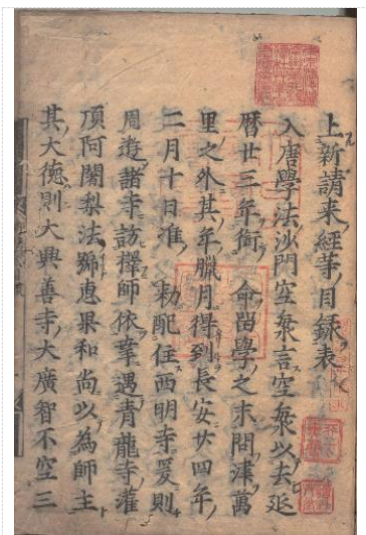 上新請来経等目録表
入唐學法沙門空海言空海以去延
暦廿三年銜命留學之末問津萬
里之外其年臘月得到長安廿四年
二月十日准勅配住西明寺爰則
周遊諸寺訪擇師依幸遇青龍寺灌
頂阿闍梨法號恵果和尚以為師主
其大徳則大興善寺大廣智不空三